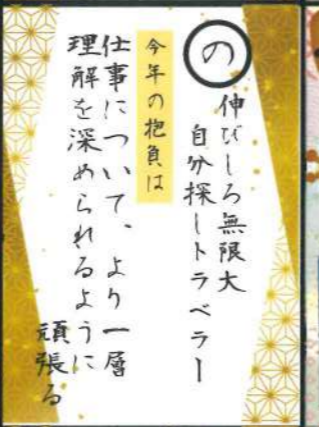 の
伸びしろ無限大
自分探しトラベラー
今年の抱負は
仕事について、より一層
理解を深められるように
頑張る